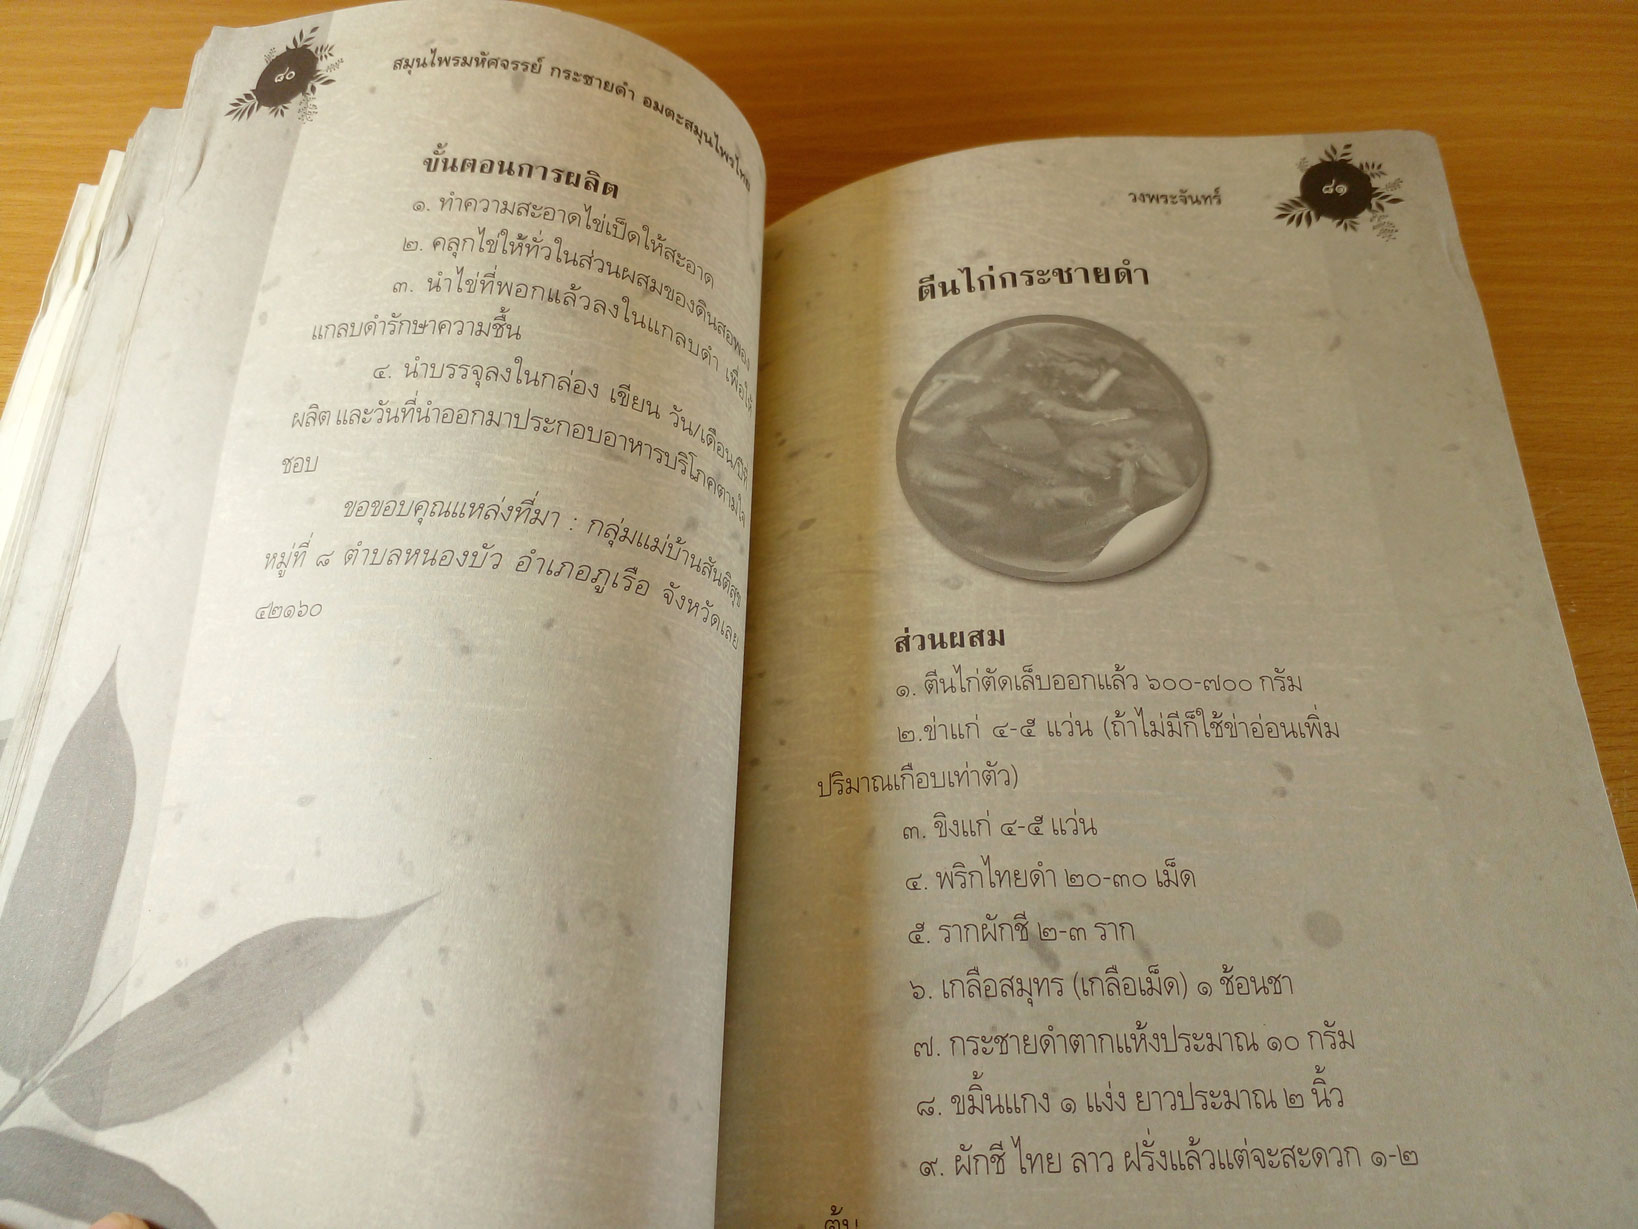 ๘๐
สมุนไพรมหัศจรรย์ กระชายดำ อมตะสมุนไพรไทย
ขั้นตอนการผลิต
๑. ทำความสะอาดไข่เป็ดให้สะอาด
๒. คลุกไข่ให้ทั่วในส่วนผสมของดินสอพอง
๓. นำไข่ที่พอกแล้วลงในแกลบดำ เพื่อให้
แกลบดำรักษาความชื้น
๔. นำบรรจุลงในกล่อง เขียน วัน/เดือน/ปีที่
ผลิต และวันที่นำออกมาประกอบอาหารบริโภคตามใจ
ชอบ
ขอขอบคุณแหล่งที่มา : กลุ่มแม่บ้านสันติสุข
หมู่ที่ ๘ ตำบลหนองบัว อำเภอภูเรือ จังหวัดเลย
๔๒๑๖๐
วงพระจันทร์
๘๑
ตีนไก่กระชายดำ
ส่วนผสม
๑. ตีนไก่ตัดเล็บออกแล้ว ๖๐๐-๗๐๐ กรัม
๒.ข่าแก่ ๔-๕ แว่น (ถ้าไม่มีก็ใช้ข่าอ่อนเพิ่ม
ปริมาณเกือบเท่าตัว)
๓. ขิงแก่ ๔-๕ แว่น
๔. พริกไทยดำ ๒๐-๓๐ เม็ด
๕. รากผักชี ๒-๓ ราก
๖. เกลือสมุทร (เกลือเม็ด) ๑ ช้อนชา
๗. กระชายดำตากแห้งประมาณ ๑๐ กรัม
๘. ขมิ้นแกง ๑ แง่ง ยาวประมาณ ๒ นิ้ว
๙. ผักชี ไทย ลาว ฝรั่งแล้วแต่จะสะดวก ๑-๒
ต้น